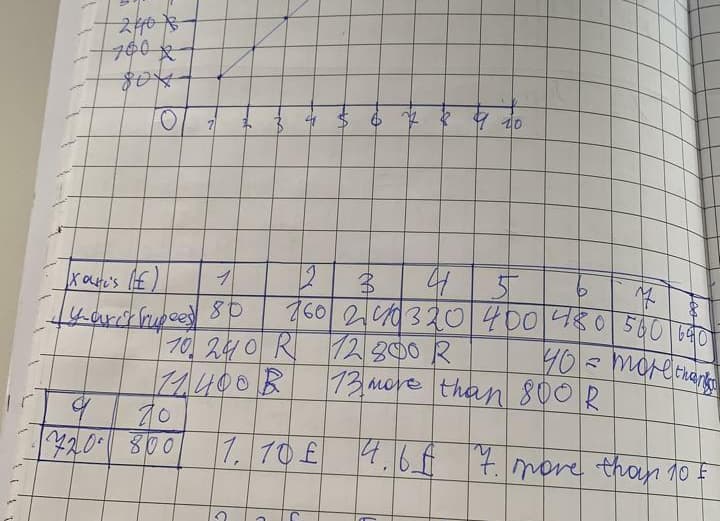 240 R
160 R
80
0 1 2 3 4 5 6 7 8 9 10
x axis (£) 1 2 3 4 5 6 7 8
y-axis (rupees) 80 160 240 320 400 480 560 640
10. 240 R 12 800 R 40 = more than 800
11. 400 R 13. more than 800 R
9 10
720 800
1. 10 £ 4. 6 £ 7. more than 10 £